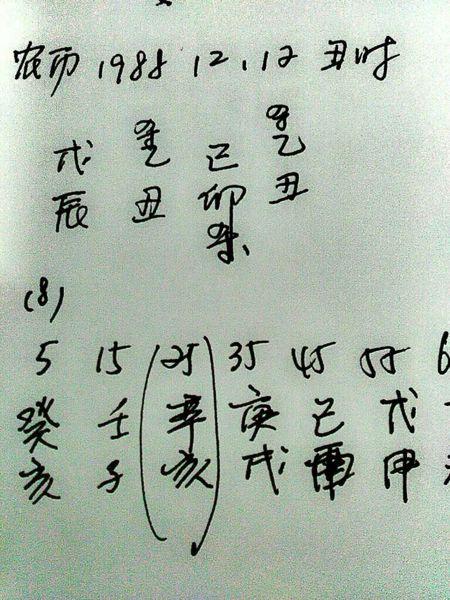 农历 1988 12.12 丑时
戊 乙 己 乙
辰 丑 卯 丑
(8)
5 15 25 35 45 55 6
癸 壬 辛 庚 己 戊
亥 子 亥 戌 酉 申